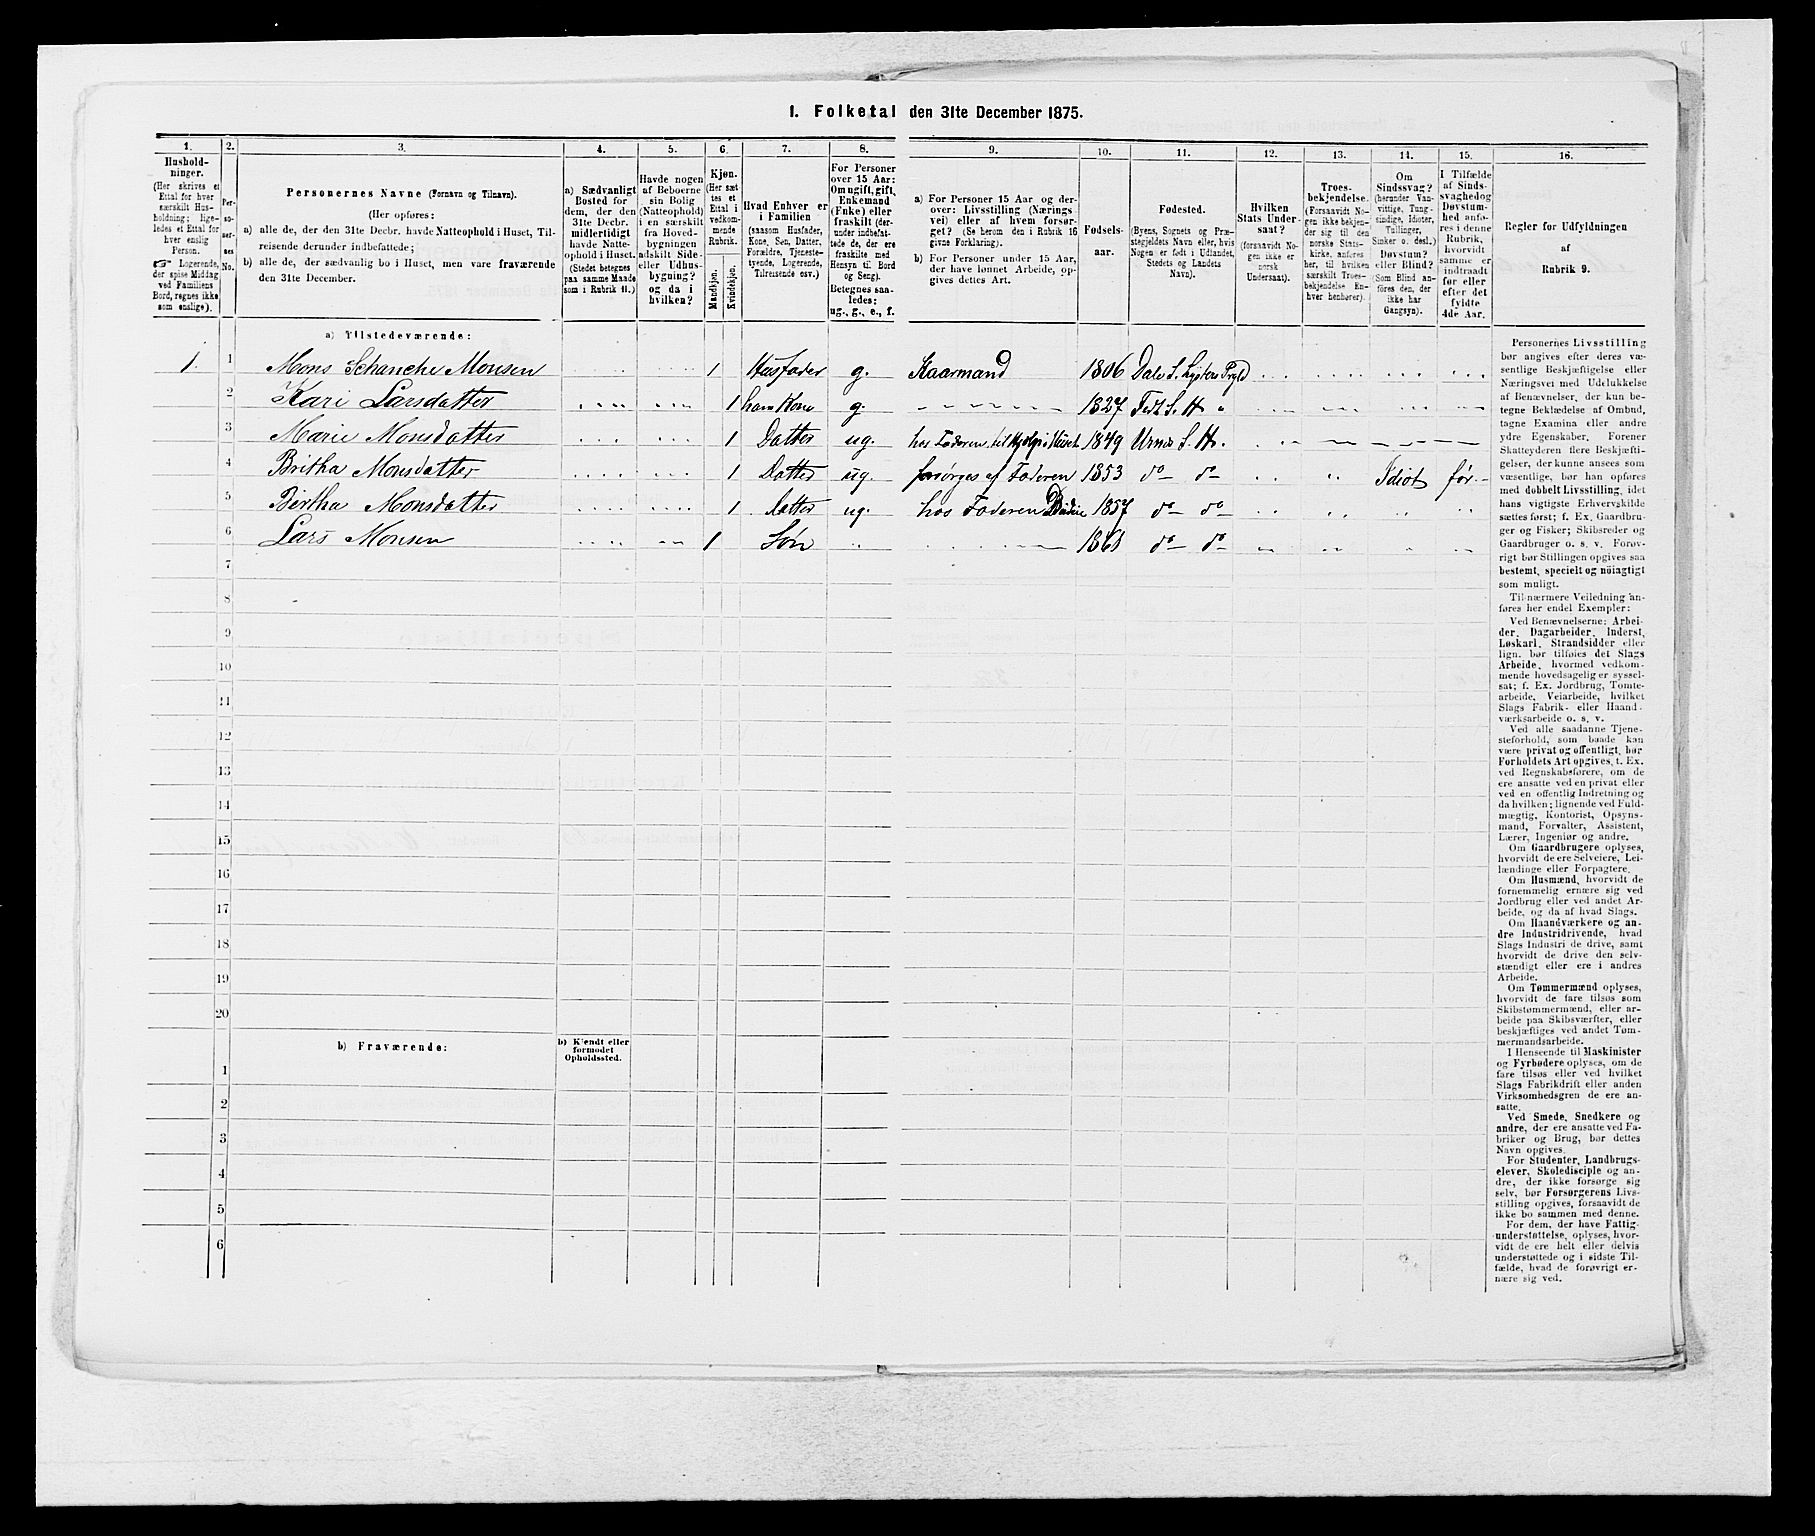 I. Folketal den 31te December 1875.
1. 2. 3. 4. 5. 6. 7. 8. 9. 10. 11. 12. 13. 14. 15. 16.
Hushold-
ninger.
(Her skrives et
Ettal for hver
særskilt Hus-
holdning; lige-
ledes et Ettal for
hver enslig
Person.
☞ Logerende,
der spise Middag
ved Familiens
Bord, regnes ikke
som enslige).
Per-
so-
ner-
nes
No.
Personernes Navne (Fornavn og Tilnavn).
(Her opføres:
a) alle de, der den 31te Decbr. havde Natteophold i Huset, Til-
reisende derunder indbefattede;
b) alle de, der sædvanlig bo i Huset, men vare fraværende
den 31te December.
a) Sædvanligt
Bosted for
dem, der den
31te Decbr.
midlertidigt
havde Natte-
ophold i Huset.
(Stedet betegnes
paa samme Maade
som i Rubrik 11.)
Havde nogen
af Beboerne
sin Bolig
(Natteophold)
i en særskilt
fra Hoved-
bygningen
adskilt Side-
eller Udhus-
bygning?
og da i
hvilken?
Kjøn.
(Her sæt-
tes et
Ettal i
vedkom-
mende
Rubrik.
Mandkjøn.
Kvindekjøn.
Hvad Enhver er
i Familien
(saasom Husfader,
Kone, Søn, Datter,
Forældre, Tjeneste-
tyende, Logerende,
Tilreisende osv.)
For Personer
over 15 Aar:
Om ugift, gift,
Enkemand
(Enke) eller
fraskilt (der-
under indbefat-
tede de, der ere
fraskilte med
Hensyn til Bord
og Seng).
Betegnes saa-
ledes:
ug., g., e., f.
a) For Personer 15 Aar og der-
over: Livsstilling (Nærings-
vei) eller af hvem forsør-
get? (Se herom den i Rubrik 16
givne Forklaring).
b) For Personer under 15 Aar,
der have lønnet Arbeide, op-
gives dettes Art.
Fødsels-
aar.
Fødested.
(Byens, Sognets og Præ-
stegjeldets Navn eller, hvis
Nogen er født i Udlandet,
Stedets og Landets
Navn).
Hvilken
Stats Under-
saat?
(forsaavidt No-
gen ikke er
norsk
Undersaat).
Troes-
bekjendelse.
(Forsaavidt No-
gen ikke bekjen-
der sig til den
norske Stats-
kirke, anføres
her, til hvilken
særskilt Troes-
bekjendelse En-
hver henhører).
Om
Sindssvag?
(herunder Van-
vittige, Tung-
sindige, Idioter,
Tullinger,
Sinker o. desl.)
Døvstum?
eller Blind?
(Som Blind an-
føres den, der
ikke har
Gangsyn).
I Tilfælde
af Sinds-
svaghed og
Døvstum-
hed anfø-
res i denne
Rubrik,
hvorvidt
samme er
indtraadt
før eller
efter det
fyldte
4de Aar.
Regler for Udfyldningen
af
Rubrik 9.
a) Tilstedeværende:
1. 1 Mons Schanche Monsen 1 Husfader g. Kaarmand 1806 Dale S. Lysters Prgld
2 Kari Larsdatter 1 hans Kone g. 1827 S. H.
3 Marie Monsdatter 1 Datter ug. hos Faderen, til Hjelp i Huset 1849 Urnæs S. H.
4 Britha Monsdatter 1 Datter ug. forsørges af Faderen 1853 do do Idiot før.
5 Bertha Monsdatter 1 Datter ug. hos Faderen 1857 do do
6 Lars Monsen 1 Søn do do
7
8
9
10
11
12
13
14
15
16
17
18
19
20
b) Fraværende:
b) Kjendt eller
formodet
Opholdssted.
1
2
3
4
5
6
Personernes Livsstilling
bør angives efter deres væ-
sentlige Beskjæftigelse eller
Næringsvei med Udelukkelse
af Benævnelser, der kun be-
tegne Beklædelse af Ombud,
tagne Examina eller andre
ydre Egenskaber. Forener
Skatteyderen flere Beskjæfti-
gelser, der kunne ansees som
væsentlige, bør han opgives
med dobbelt Livsstilling, idet
hans vigtigste Erhvervskilde
sættes først; f. Ex. Gaardbru-
ger og Fisker; Skibsreder og
Gaardbruger o. s. v. Forøv-
rigt bør Stillingen opgives saa
bestemt, specielt og nøiagtigt
som muligt.
Til nærmere Veiledning an-
føres her endel Exempler:
Ved Benævnelserne: Arbei-
der, Dagarbeider, Inderst,
Løskarl, Strandsidder eller
lign. bør tilføies det Slags
Arbeide, hvormed vedkom-
mende hovedsagelig er syssel-
sat; f. Ex. Jordbrug, Tomte-
arbeide, Veiarbeide, hvilket
Slags Fabrik- eller Haand-
værksarbeide o. s. v.
Ved alle saadanne Tjene-
steforhold, som baade kan
være privat og offentligt, bør
Forholdets Art opgives, f. Ex.
ved Regnskabsførere, om de
ere ansatte ved en privat eller
ved en offentlig Indretning og
da hvilken; lignende ved Fuld-
mægtig, Kontorist, Opsyns-
mand, Forvalter, Assistent,
Lærer, Ingeniør og andre.
Om Gaardbrugere oplyses,
hvorvidt de ere Selveiere, Lei-
lændinge eller Forpagtere.
Om Husmænd, hvorvidt de
fornemmelig ernære sig ved
Jordbrug eller ved andet Ar-
beide, og da af hvad Slags.
Om Haandværkere og an-
dre Industridrivende, hvad
Slags Industri de drive, samt
hvorvidt de drive den selv-
stændigt eller ere i andres
Arbeide.
Om Tømmermænd oplyses,
hvorvidt de fare tilsøs som
Skibstømmermænd, eller ar-
beide paa Skibsværfter, eller
beskjæftiges ved andet Tøm-
mermandsarbeide.
I Henseende til Maskinister
og Fyrbødere oplyses, om de
fare tilsøs eller ved hvilket
Slags Fabrikdrift eller anden
Virksomhedsgren de ere an-
satte.
Ved Smede, Snedkere og
andre, der ere ansatte ved Fa-
briker og Brug, bør dettes
Navn opgives.
For Studenter, Landbrugs-
elever, Skoledisciple og an-
dre, der ikke forsørge sig
selv, bør Forsørgerens Livs-
stilling opgives, forsaavidt de
ikke bo sammen med denne.
For dem, der have Fattig-
understøttelse, oplyses, hvor-
vidt de ere helt eller delvis
understøttede og i sidste Til-
fælde, hvad de forøvrigt er-
nære sig ved.